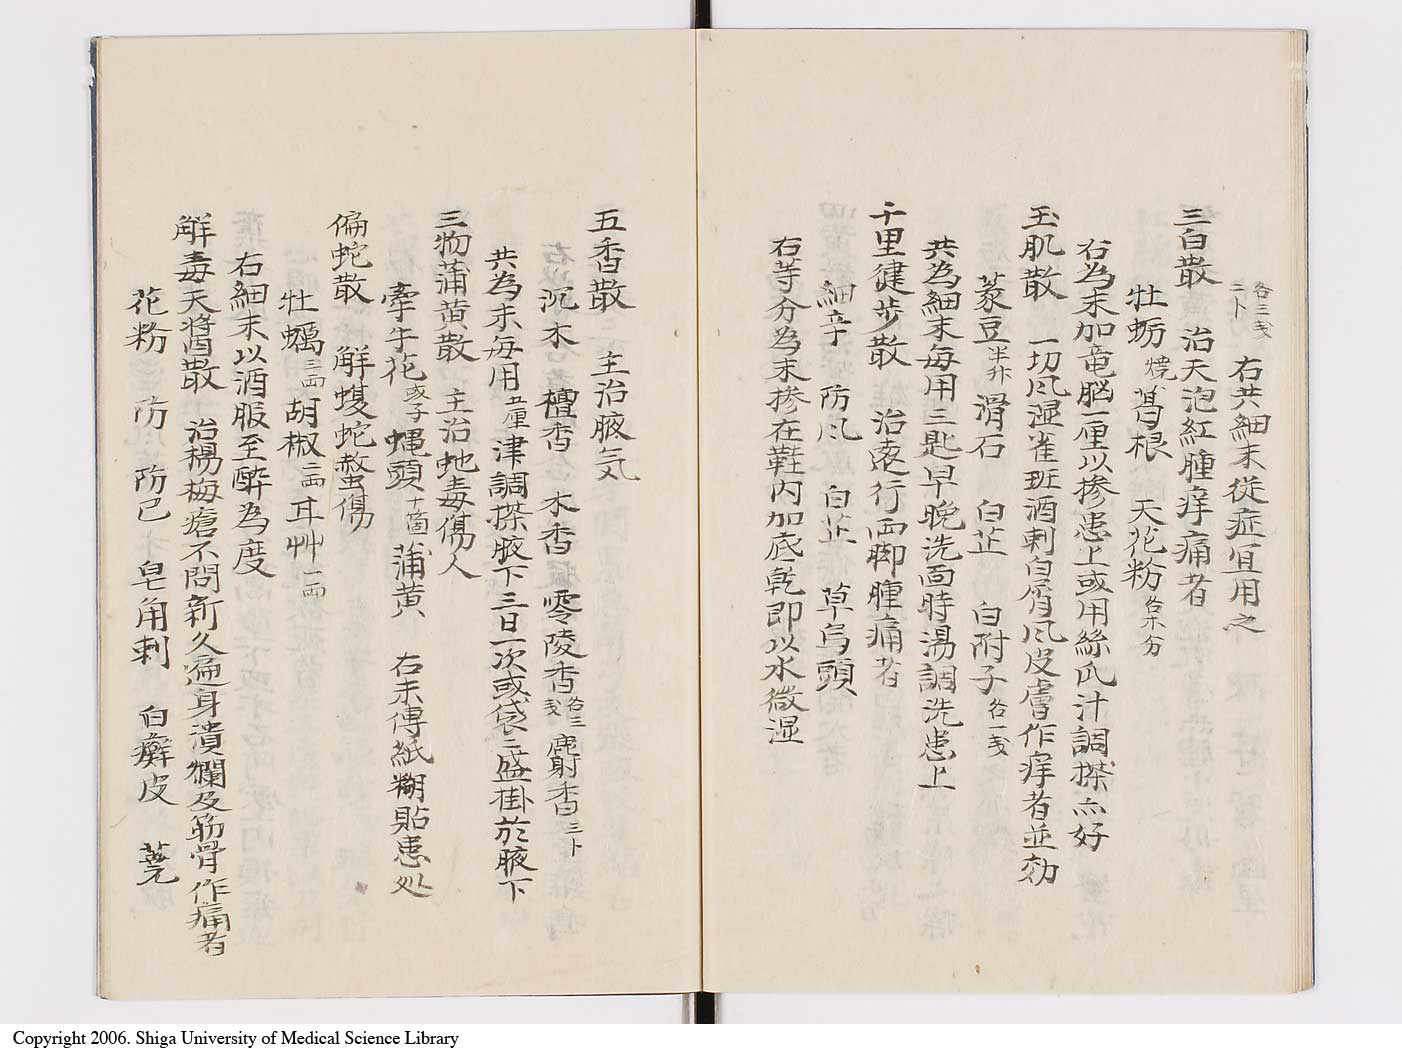 各三戔二卜 右共細末従症宜用之
三白散 治天泡紅腫痒痛者
牡蛎焼 葛根 天花粉各木分
右為末加竜脳一厘以摻患上或用絲瓜汁調搽亦好
玉肌散 一切风湿雀斑酒刺白屑风皮膚作痒者並効
菉豆半升 滑石 白芷 白附子各一戔
共為細末毎用三匙早晩洗面時湯調洗患上
千里健歩散 治遠行両脚腫痛者
細辛 防风 白芷 草烏頭
右等分為末摻在鞋内加底乾即以水微湿
五香散 主治腋气
沉木 檀香 木香 零陵香各三戔 麝香三卜
共為末毎用五厘津調搽腋下三日一次或袋ニ盛掛於腋下
三物蒲黄散 主治虵毒傷人
牽牛花或子 蝿頭十箇 蒲黄 右末傅紙糊貼患处
偏蛇散 解蝮蛇螫傷
牡蠣三両 胡椒二両 耳艸一両
右細末以酒服至酔為度
解毒天漿散 治楊梅瘡不問新久遍身潰爛及筋骨作痛者
花粉 防风 防已 皂角刺 白癬皮